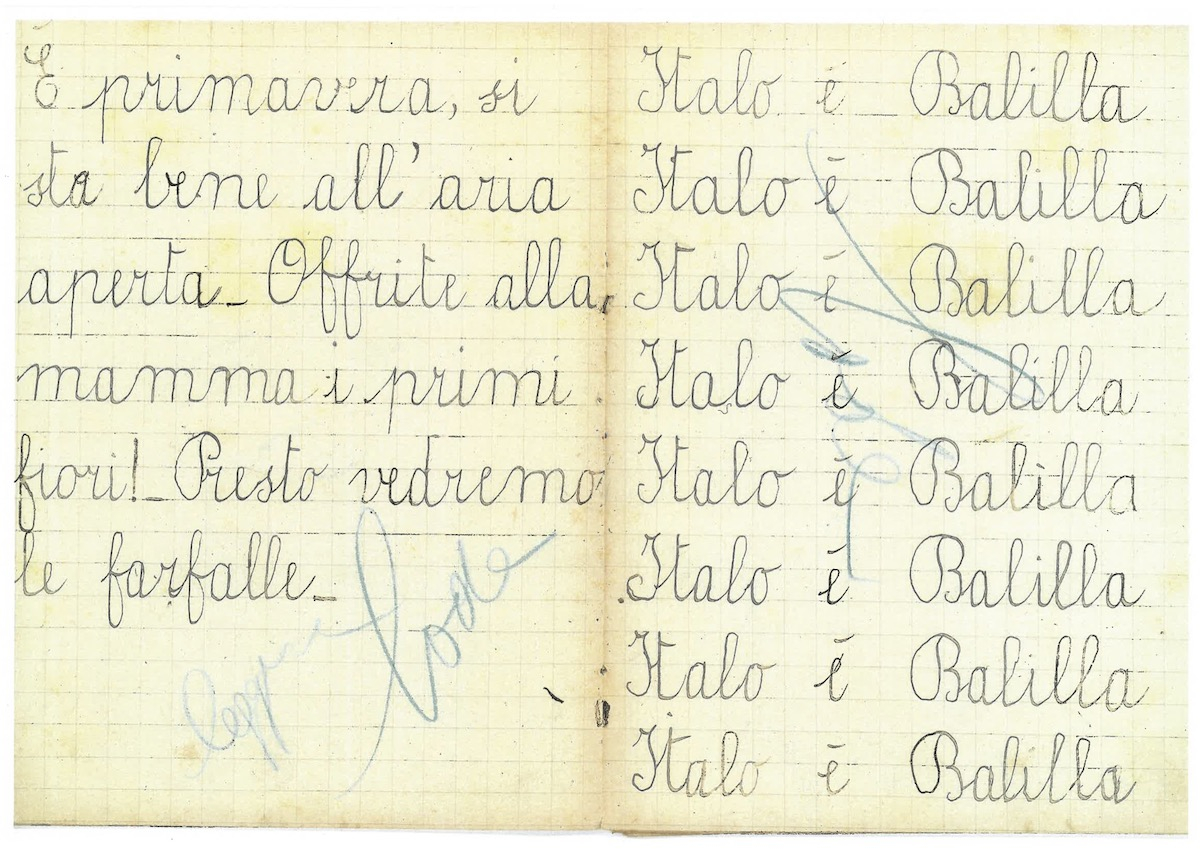 È primavera, si
sta bene all'aria
aperta_ Offrite alla
mamma i primi
fiori!_ Presto vedremo
le farfalle_
lode
Italo è Balilla
Italo è Balilla
Italo è Balilla
Italo è Balilla
Italo è Balilla
Italo è Balilla
Italo è Balilla
Italo è Balilla